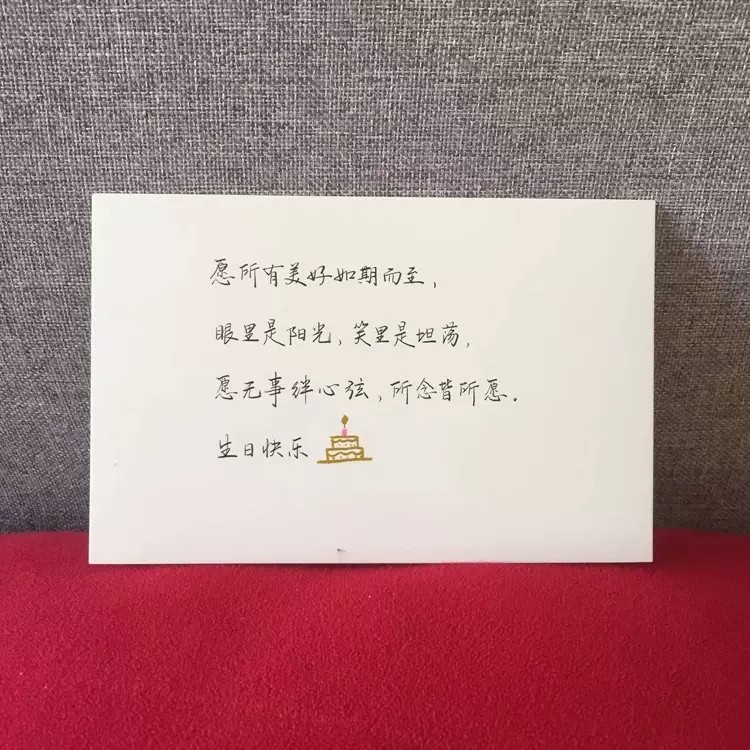 愿所有美好如期而至，
眼里是阳光，笑里是坦荡，
愿无事绊心弦，所念皆所愿。
生日快乐